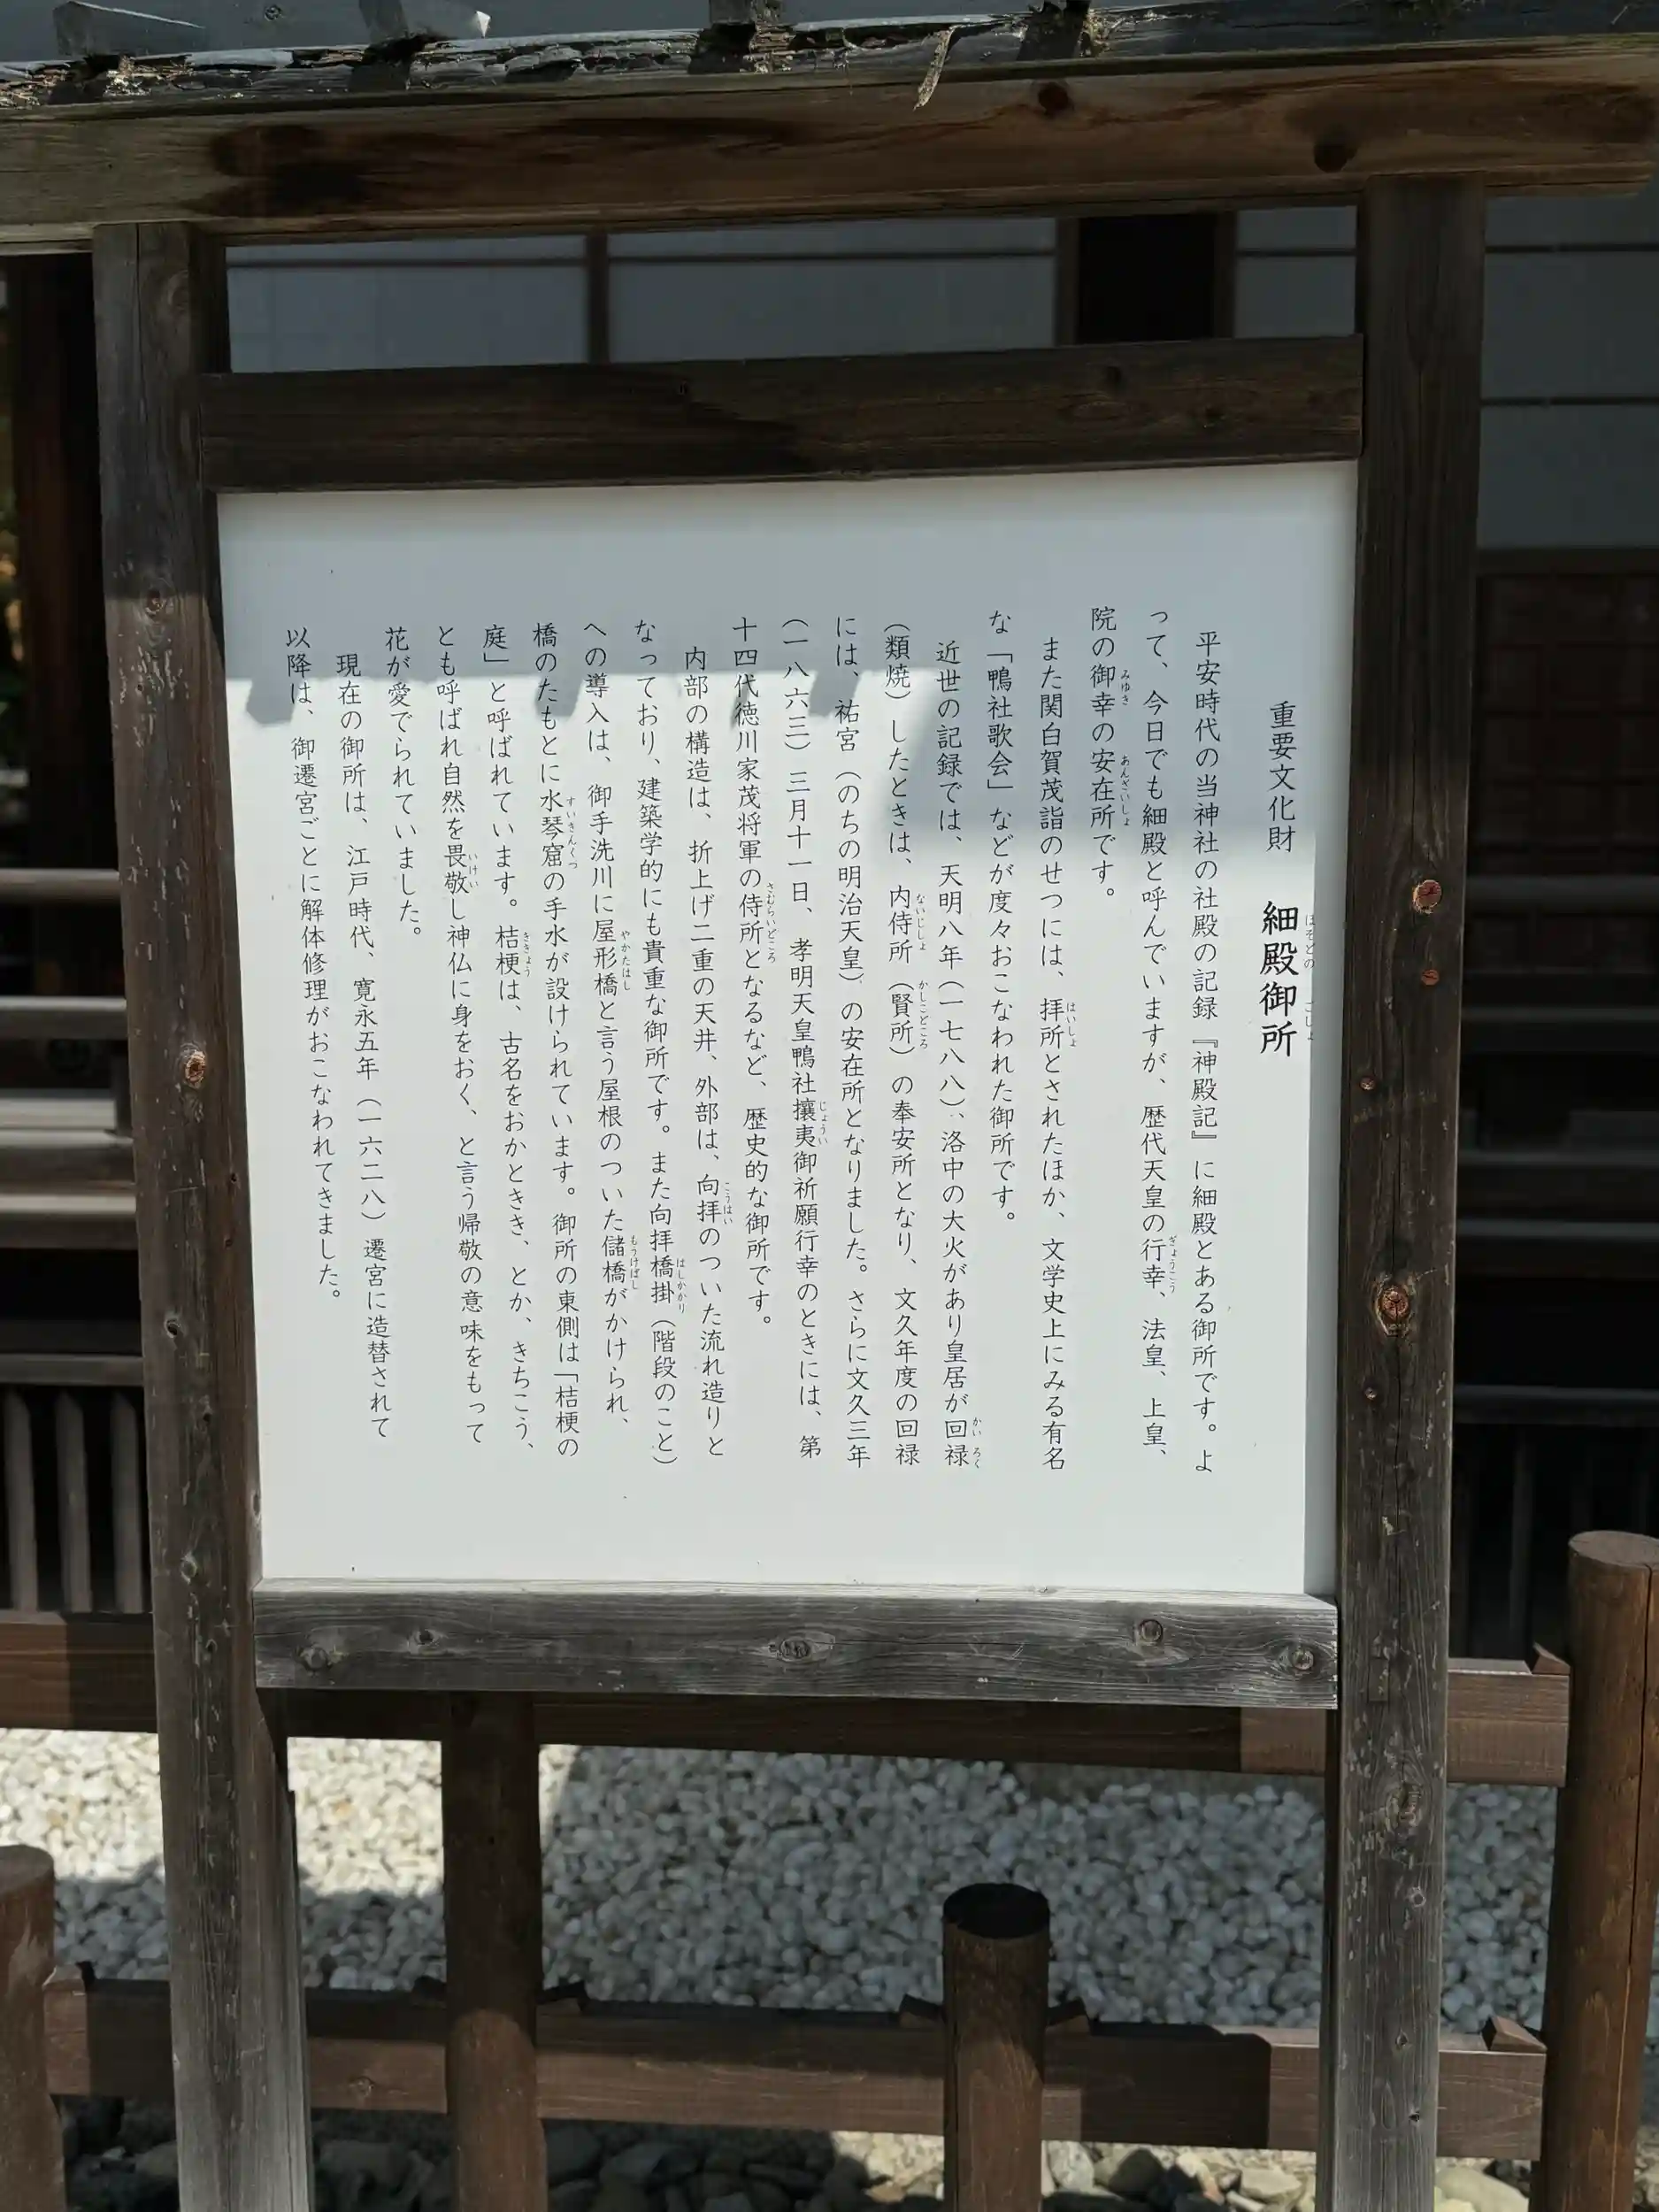 重要文化財　細殿御所
ほそどの　ごしょ
平安時代の当神社の社殿の記録『神殿記』に細殿とある御所です。よ
って、今日でも細殿と呼んでいますが、歴代天皇の行幸、法皇、上皇、
ぎょうこう
院の御幸の安在所です。
みゆき　あんざいしょ
また関白賀茂詣のせつには、拝所とされたほか、文学史上にみる有名
はいしょ
な「鴨社歌会」などが度々おこなわれた御所です。
近世の記録では、天明八年（一七八八）、洛中の大火があり皇居が回禄
かいろく
（類焼）したときは、内侍所（賢所）の奉安所となり、文久年度の回禄
ないじしょ　かしこどころ
には、祐宮（のちの明治天皇）の安在所となりました。さらに文久三年
（一八六三）三月十一日、孝明天皇鴨社攘夷御祈願行幸のときには、第
じょうい
十四代徳川家茂将軍の侍所となるなど、歴史的な御所です。
さむらいどころ
内部の構造は、折上げ二重の天井、外部は、向拝のついた流れ造りと
こうはい
なっており、建築学的にも貴重な御所です。また向拝橋掛（階段のこと）
はしかかり
への導入は、御手洗川に屋形橋と言う屋根のついた儲橋がかけられ、
やかたはし　もうけばし
橋のたもとに水琴窟の手水が設けられています。御所の東側は「桔梗の
すいきんくつ
庭」と呼ばれています。桔梗は、古名をおかときき、とか、きちこう、
ききょう
とも呼ばれ自然を畏敬し神仏に身をおく、と言う帰敬の意味をもって
いけい
花が愛でられていました。
現在の御所は、江戸時代、寛永五年（一六二八）遷宮に造替されて
以降は、御遷宮ごとに解体修理がおこなわれてきました。